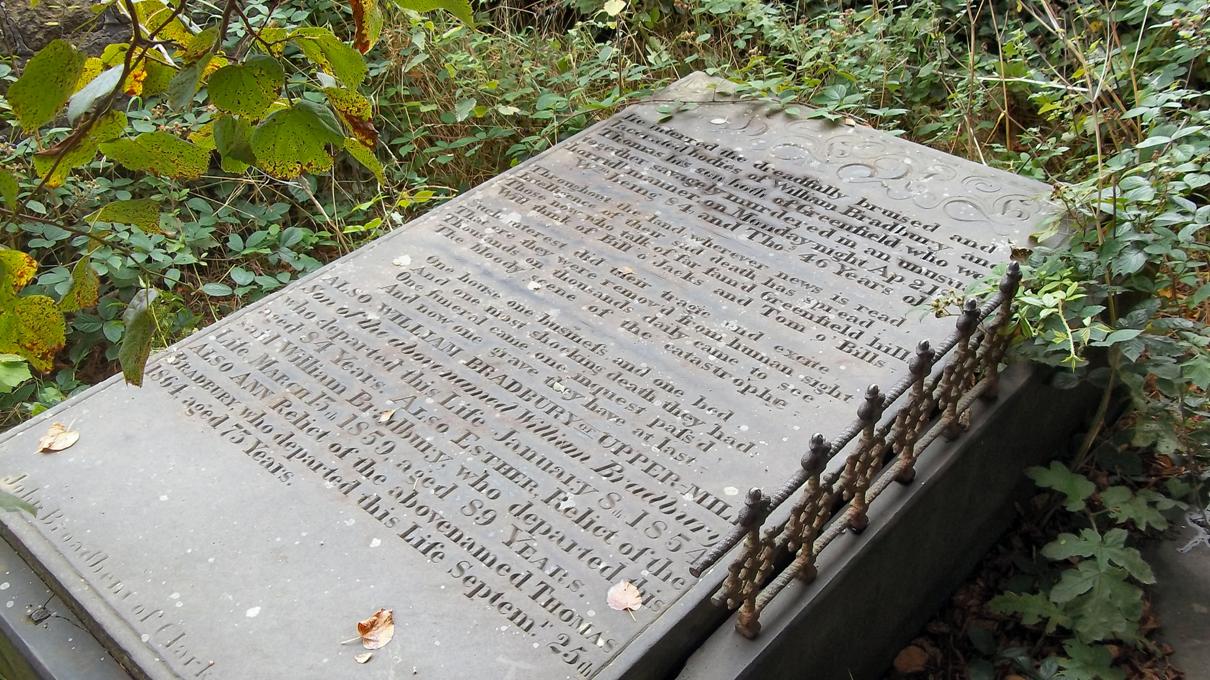 lie interred the dreadfully bruised and
lacerated bodies of William Bradbury and
Thomas his son both of Greenfield who we
together savagely murdered in an unus
manner on Monday night April 2nd
and Tho 46 Years o
Throughout the land wherever news is read
of their sad death has spread
Greenfield hil
Will think of Bill o Jack's and Tom o Bills
Such interest did their tragic end excite
That ere they were remov'd from human sight
Thousands on thousands daily came to see
The bloody scene of the catastrophe
One house one business and one bed
And one most shocking death they had
One funeral came one inquest pass'd
And now one grave they have at last.
ALSO WILLIAM BRADBURY OF UPPER-MILL
Son of the abovenamed William Bradbury
who departed this Life January 8th 1854
aged 54 Years. Also ESTHER Relict of the
said William Bradbury, who departed this
Life March 1859 aged 89 YEARS.
Also ANN Relict of the abovenamed THOMAS
BRADBURY who departed this Life Septemr 25th
1861 aged 75 Years.
Broadbent of Clark